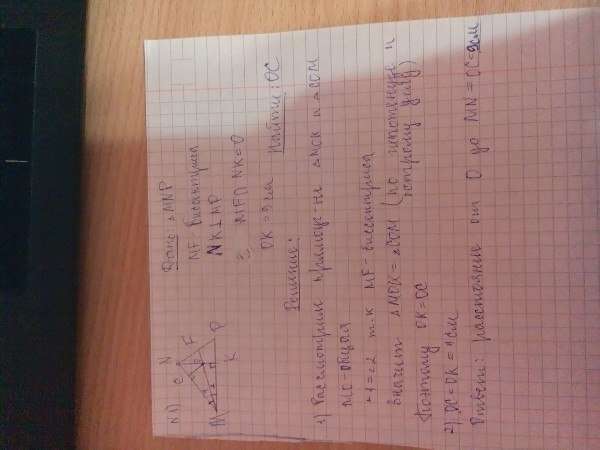 N 1)
C N
F
M
P
K
Дано: △MNP
MF биссектриса
NK⊥MP
MF∩NK=O
OK = 9 см Найти: OC
Решение:
1) Рассмотрим прямоуг-ые △MOK и △COM
MO-общая
∠1=∠2 т.к MF-биссектриса
Значит △MOK=△COM (по гипотенузе и
острому углу)
Поэтому OK=OC
2) OC=OK=9см
Ответ: расстояние от O до MN = OC=9см